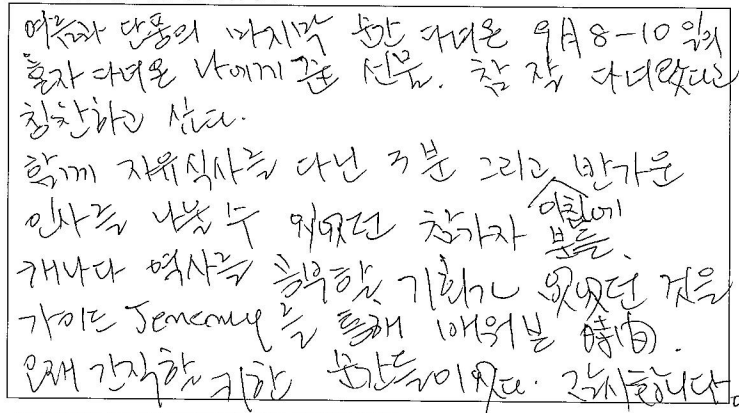 여름과 단풍의 마지막 순간 다녀온 9月 8-10일의
혼자 다녀온 나에게 준 선물. 참 잘 다녀왔다고
칭찬하고 싶다.
함께 자유식사를 다닌 3분 그리고 반가운
인사를 나눌 수 있었던 참가자 아침에 분들.
캐나다 역사를 공부할 기회가 없었던 것을
가이드 Jeremy를 통해 배워본 時間.
오래 간직할 귀한 순간들이었다. 감사합니다.